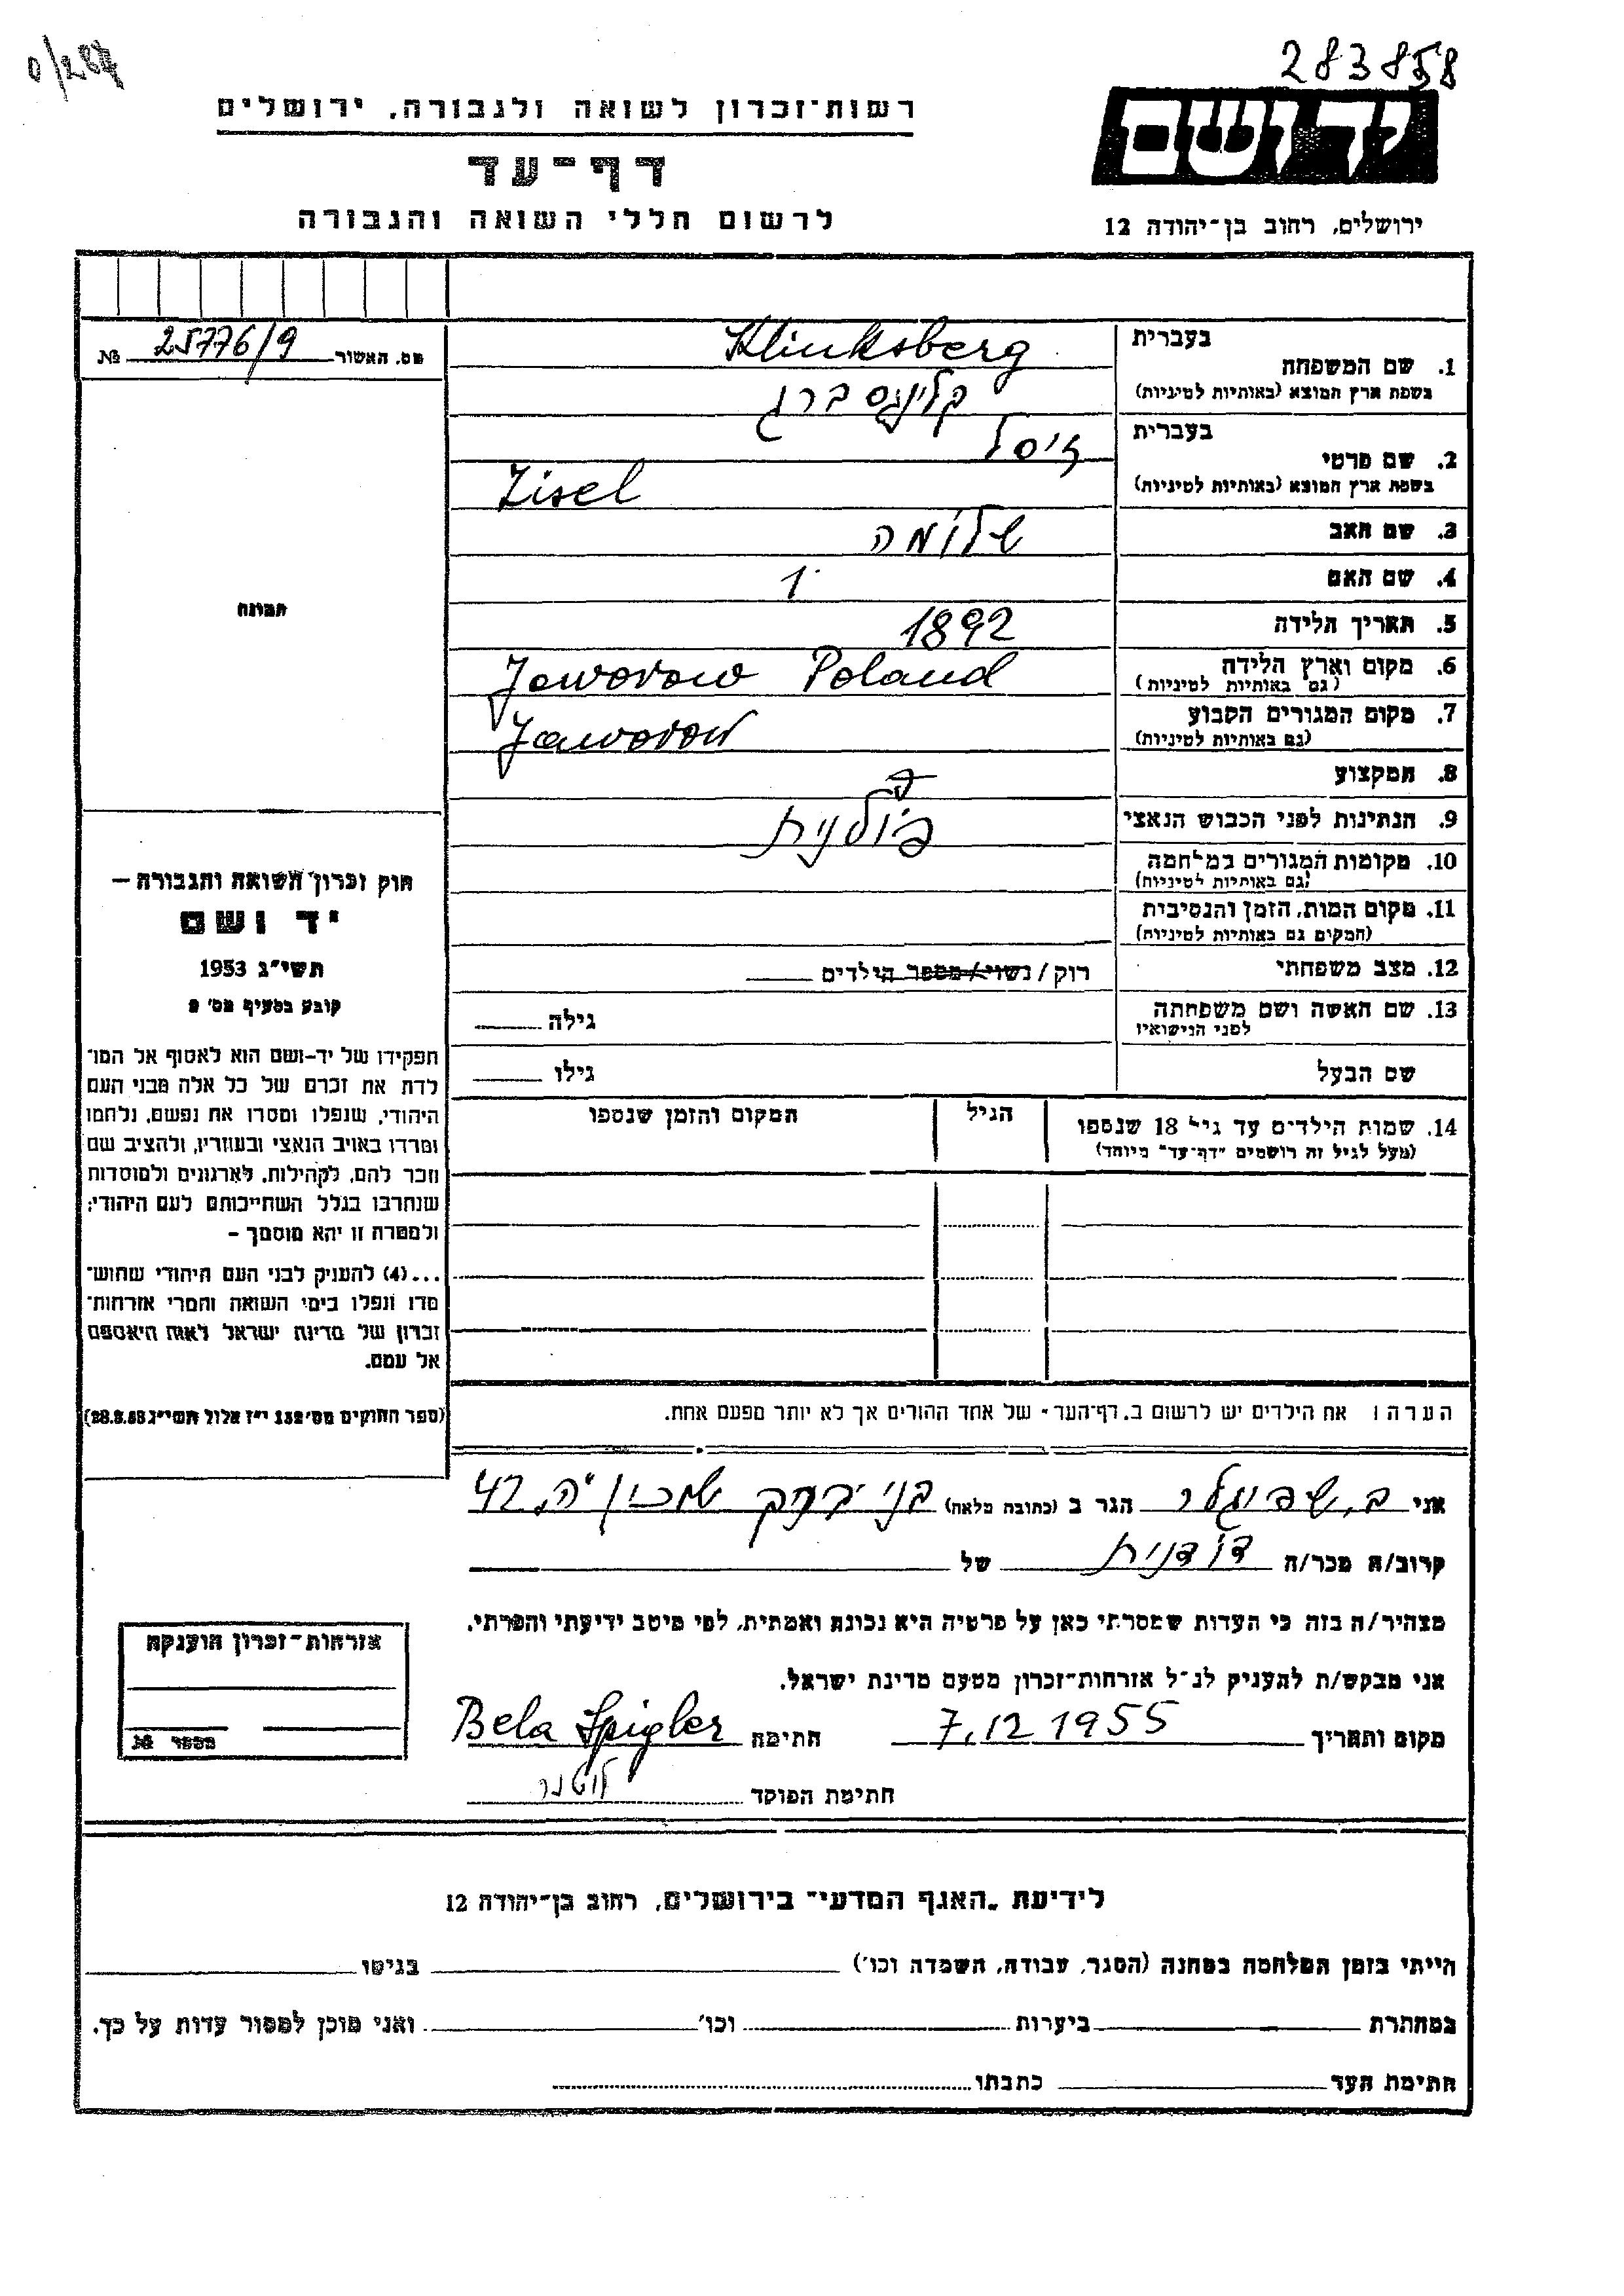 283858
רשות־זכרון לשואה ולגבורה, ירושלים
יד ושם
דף־עד
לרשום חללי השואה והגבורה
ירושלים, רחוב בן־יהודה 12
מס. האשור 25776/9 №
בעברית
Klinksberg
1. שם המשפחה
בשפת ארץ המוצא (באותיות לטיניות)
קלינגסברג
בעברית
זיסל
2. שם פרטי
בשפת ארץ המוצא (באותיות לטיניות)
Zisel
3. שם האב שלומה
4. שם האם
5. תאריך הלידה 1892
6. מקום וארץ הלידה
(גם באותיות לטיניות)
Jaworow Poland
7. מקום המגורים הקבוע
(גם באותיות לטיניות)
Jaworow
8. המקצוע
9. הנתינות לפני הכבוש הנאצי פולנית
10. מקומות המגורים במלחמה
(גם באותיות לטיניות)
11. מקום המות, הזמן והנסיבות
(המקום גם באותיות לטיניות)
12. מצב משפחתי רוק / נשוי / מספר הילדים
13. שם האשה ושם משפחתה
לפני הנישואין
גילה
שם הבעל גילו
14. שמות הילדים עד גיל 18 שנספו
(מעל לגיל זה רושמים "דף־עד" מיוחד)
הגיל
המקום והזמן שנספו
הערה: את הילדים יש לרשום ב"דף־העד" של אחד ההורים אך לא יותר מפעם אחת.
תמונה
חוק זכרון השואה והגבורה –
יד ושם
תשי"ג 1953
קובע בסעיף מס' 2
תפקידו של יד-ושם הוא לאסוף אל המו־
לדת את זכרם של כל אלה מבני העם
היהודי, שנפלו ומסרו את נפשם, נלחמו
ומרדו באויב הנאצי ובעוזריו, ולהציב שם
וזכר להם, לקהילות, לארגונים ולמוסדות
שנחרבו בגלל השתייכותם לעם היהודי;
ולמטרה זו יהא מוסמך –
...(4) להעניק לבני העם היהודי שהוש־
מדו ונפלו בימי השואה והמרי אזרחות־
זכרון של מדינת ישראל לאות היאספם
אל עמם.
(ספר החוקים מס' 132 י"ז אלול תשי"ג 28.8.53)
אני ב. שפיגלר הגר ב (כתובה מלאה) בני ברק שכון ה. 42
קרוב/ה מכר/ה דודנית של
מצהיר/ה בזה כי העדות שמסרתי כאן על פרטיה היא נכונה ואמתית, לפי מיטב ידיעתי והכרתי.
אני מבקש/ת להעניק לנ"ל אזרחות־זכרון מטעם מדינת ישראל.
מקום ותאריך 7.12 1955 חתימה Bela Spigler
חתימת הפוקד
אזרחות־זכרון הוענקה
מספר №
לידיעת "האגף המדעי" בירושלים, רחוב בן־יהודה 12
הייתי בזמן המלחמה במחנה (הסגר, עבודה, השמדה וכו') בגיטו
במחתרת ביערות וכו' ואני מוכן למסור עדות על כך.
חתימת העד כתבתו